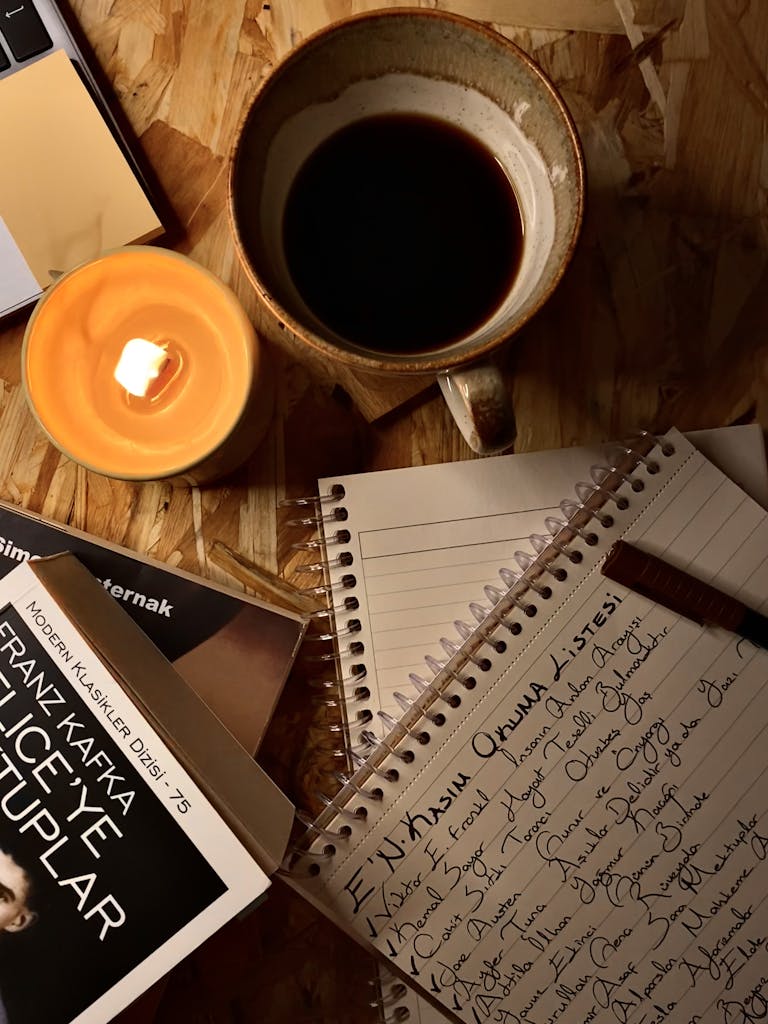 Sim
ternak
MODERN KLASİKLER DİZİSİ - 75
FRANZ KAFKA
ELICE'YE
KTUPLAR
E'N. KASIM OKUMA LİSTESİ
✓ Viktor E. Frankl İnsanın Anlam Arayışı
✓ Kemal Sayar Hayat Teselli Bulmaktır
✓ Cahit Sıtkı Tarancı Otuzbeş Yaş
✓ Jane Austen Gurur ve Önyargı
✓ Ayfer Tunç Aşıklar Delidir ya da Yazı
✓ Attila İlhan Yağmur Kaçağı
Yavuz Ekinci Günün Birinde
urullah Genç Rüveyda
Asaf Sana Mektuplar
Alparslan Mahkeme
Aforizmalar
Elde
Beyaz